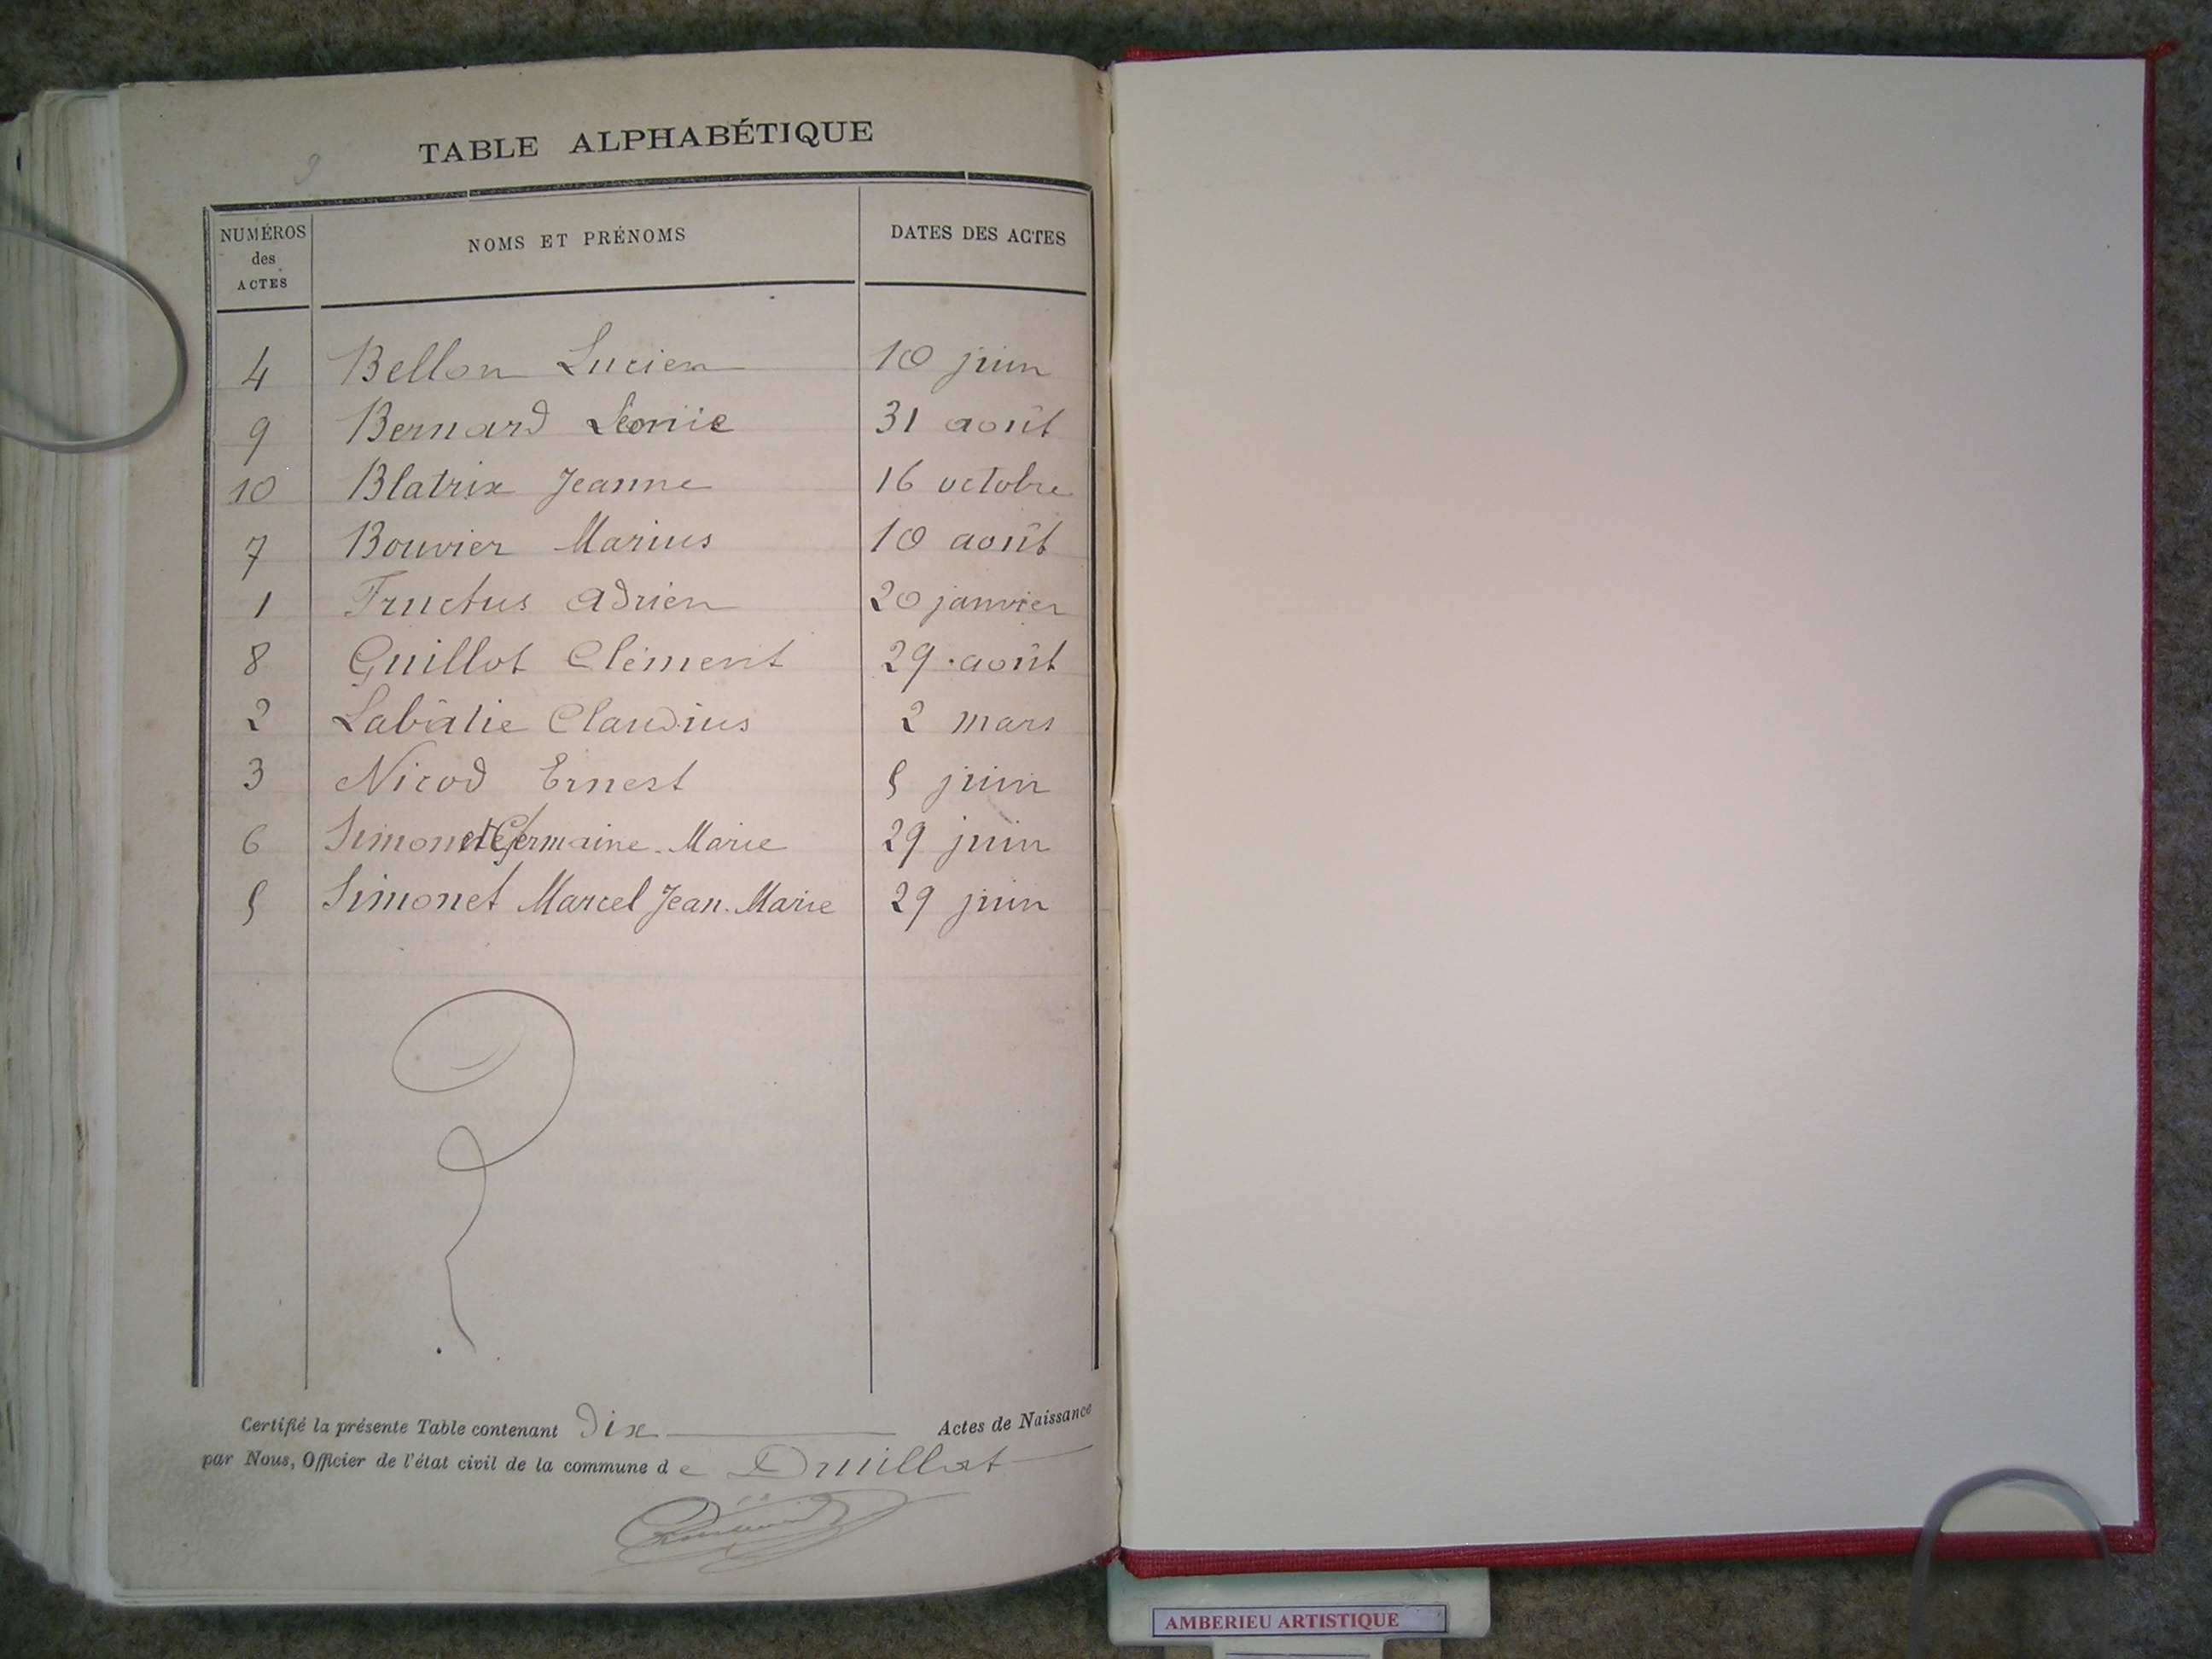 TABLE ALPHABÉTIQUE
NUMÉROS des ACTES NOMS ET PRÉNOMS DATES DES ACTES
4 Bellon Lucien 10 juin
9 Bernard Léonie 31 août
10 Blatrix Jeanne 16 octobre
7 Bouvier Marius 10 août
1 Fructus Adrien 20 janvier
8 Guillot Clément 29 août
2 Labâtie Claudius 2 mars
3 Nicod Ernest 5 juin
6 Simonet Germaine-Marie 29 juin
5 Simonet Marcel Jean-Marie 29 juin
Certifié la présente Table contenant Dix Actes de Naissance
par Nous, Officier de l'état civil de la commune de Druillat
AMBERIEU ARTISTIQUE